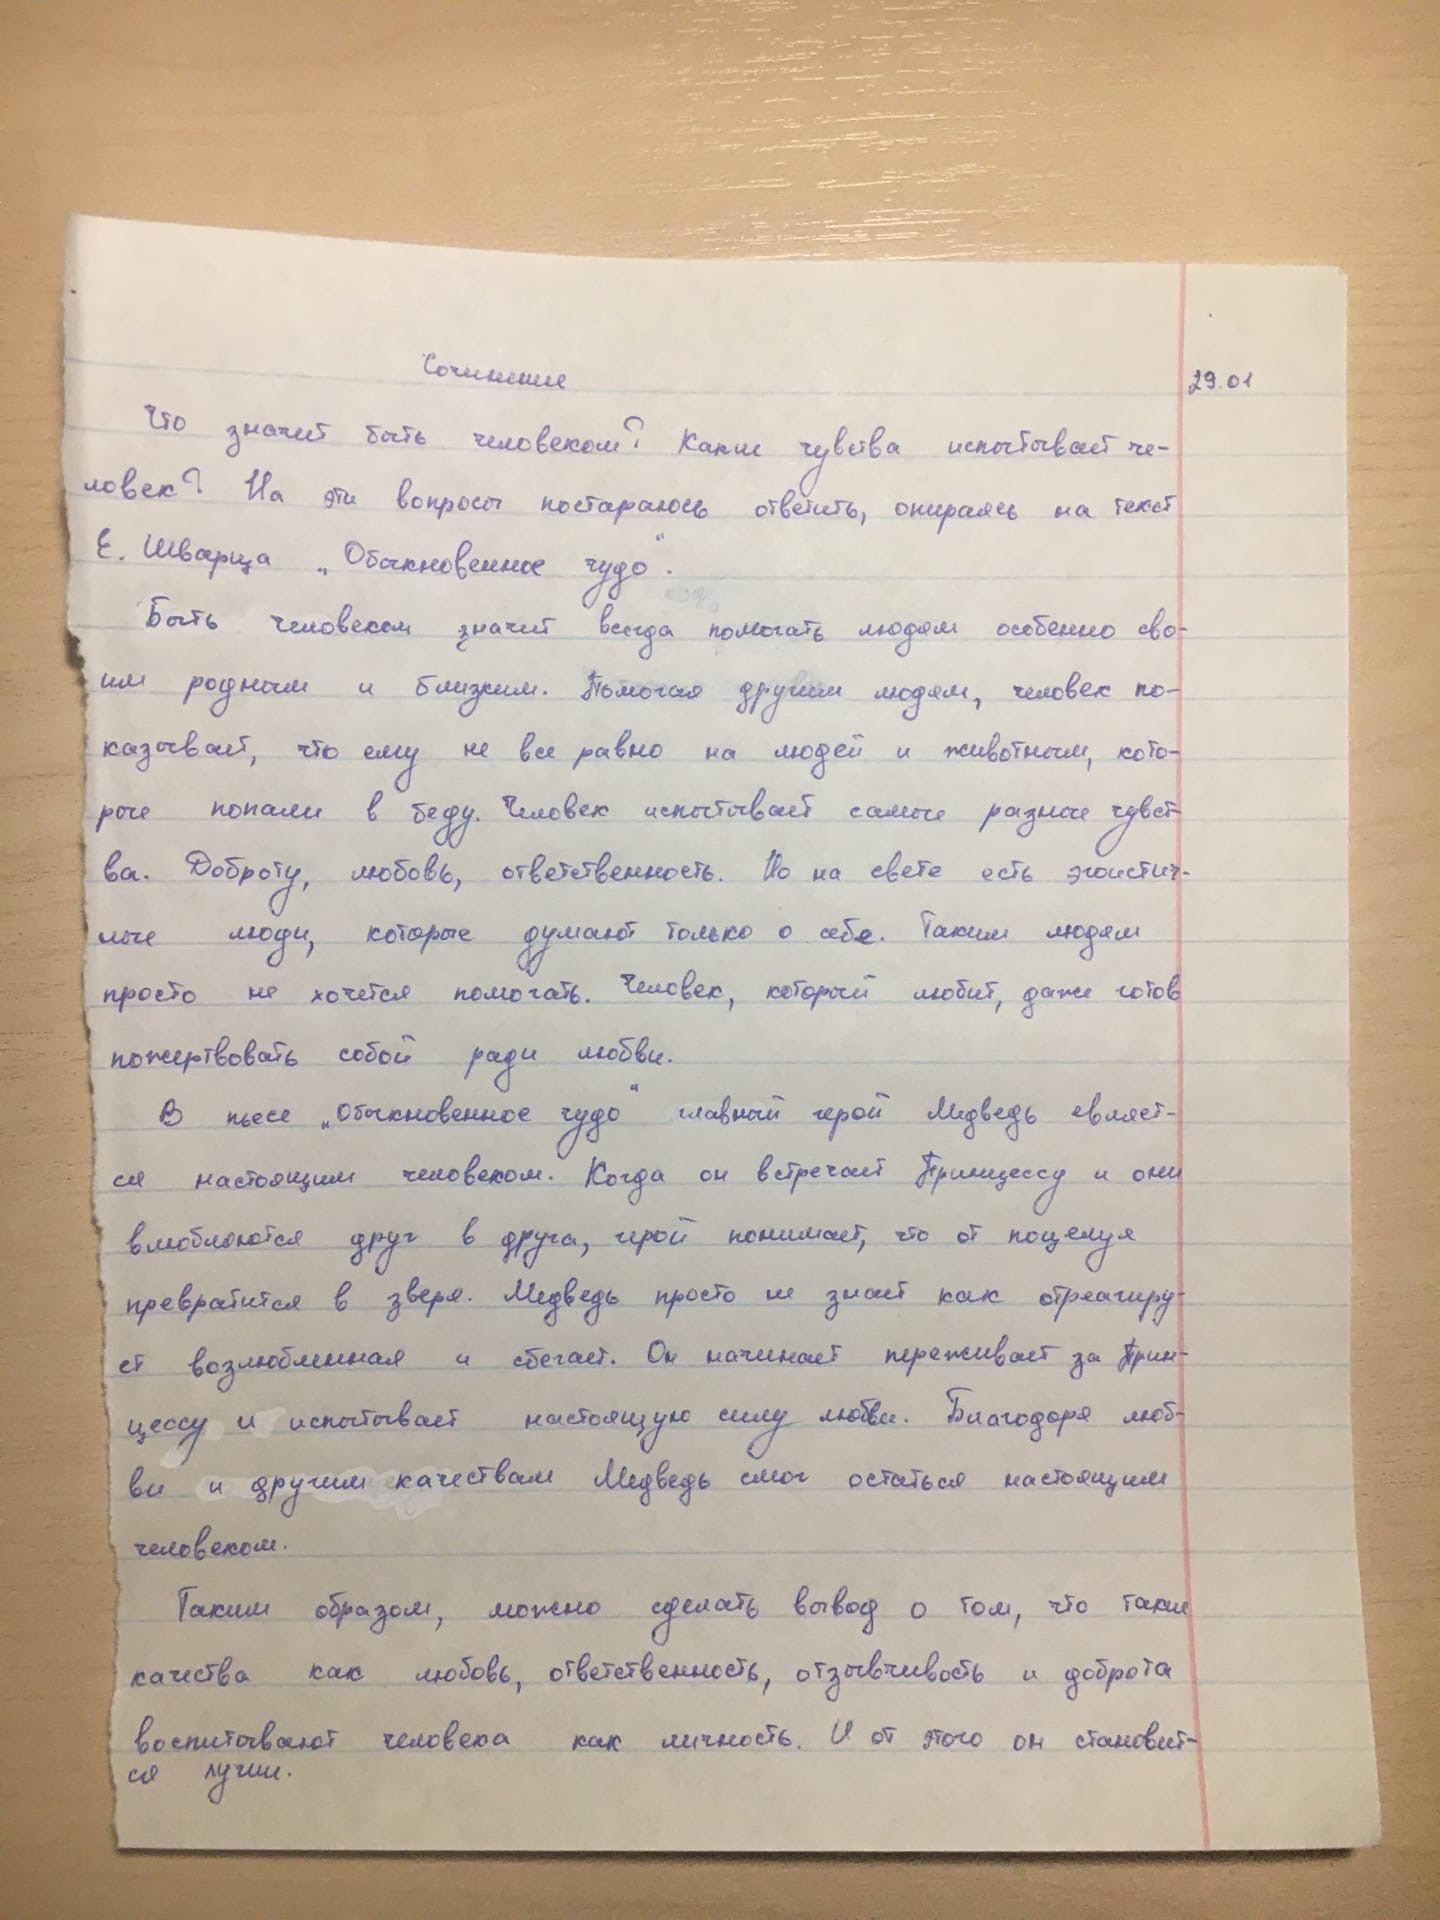 Сочинение
29.01
Что значит быть человеком? Какие чувства испытывает че-
ловек? На эти вопросы постараюсь ответить, опираясь на текст
Е. Шварца „Обыкновенное чудо".
Быть человеком значит всегда помогать людям особенно сво-
им родным и близким. Помогая другим людям, человек по-
казывает, что ему не все равно на людей и животным, кото-
рые попали в беду. Человек испытывает самые разные чувст-
ва. Доброту, любовь, ответственность. Но на свете есть эгоистич-
ные люди, которые думают только о себе. Таким людям
просто не хочется помогать. Человек, который любит, даже готов
пожертвовать собой ради любви.
В пьесе „Обыкновенное чудо" главный герой Медведь евляет-
ся настоящим человеком. Когда он встречает Принцессу и они
влюбляются друг в друга, герой понимает, что от поцелуя
превратится в зверя. Медведь просто не знает как отреагиру-
ет возлюбленная и сбегает. Он начинает переживает за Прин-
цессу и испытывает настоящую силу любви. Благодоря люб-
ви и другим качествам Медведь смог остаться настоящим
человеком.
Таким образом, можно сделать вывод о том, что такие
качества как любовь, ответственность, отзывчивость и доброта
воспитывают человека как личность. И от этого он становит-
ся лучше.